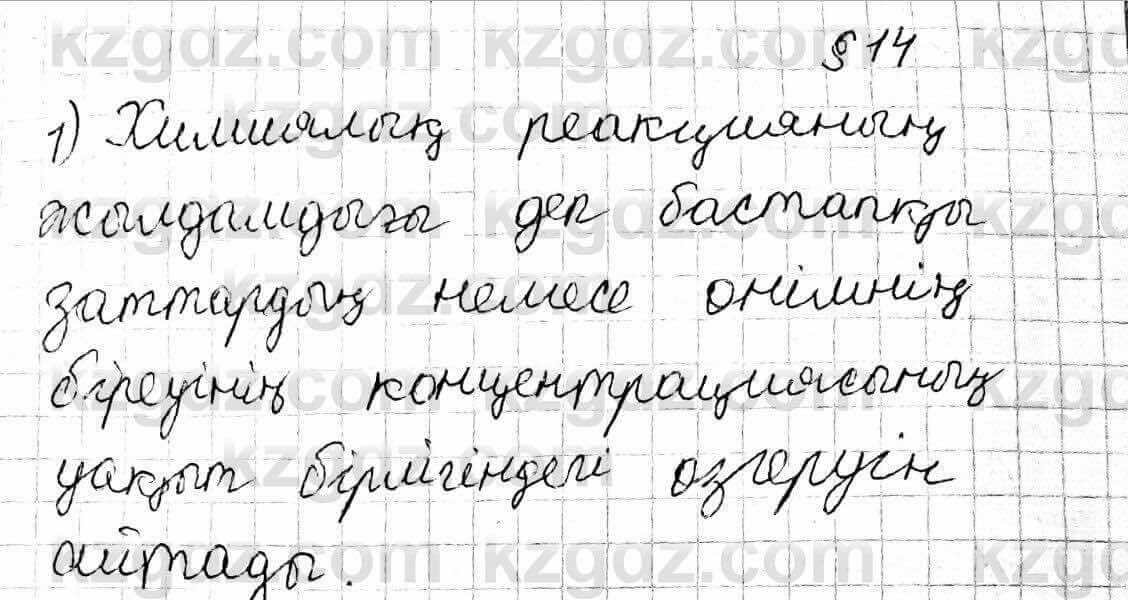 § 14
1) Химиялық реакцияның
жылдамдығы деп бастапқы
заттардың немесе өнімнің
біреуінің концентрациясының
уақыт бірлігіндегі өзгеруін
айтады.